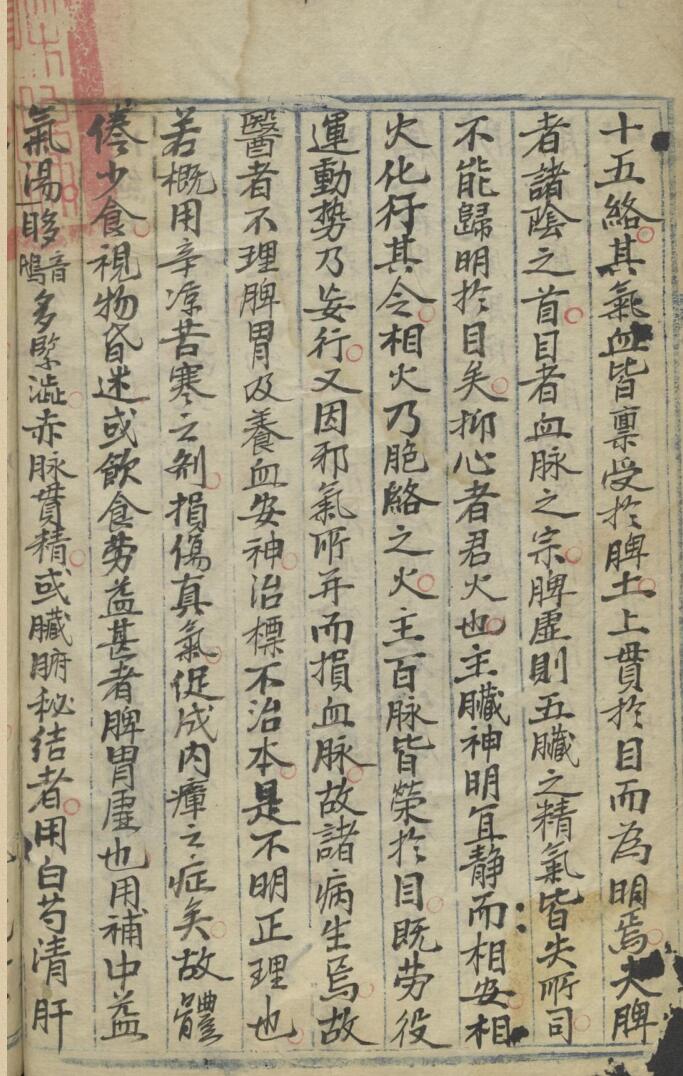 十五絡。其氣血皆禀受於脾土。上貫於目而為明焉。夫脾
者諸陰之首。目者血脉之宗。脾虛則五臟之精氣皆失所司。
不能歸明於目矣。抑心者君火也。主臟神明宜静而相安相
火化行其令。相火乃胞絡之火。主百脉皆榮於目。既劳役
運動势乃妄行。又因邪氣所并而損血脉。故諸病生焉。故
醫者不理脾胃及養血安神。治標不治本。是不明正理也。
若概用辛凉苦寒之剂。損傷真氣。促成内瘴之症矣。故體
倦少食。視物昏迷或飲食劳益甚者脾胃虛也用補中益
氣湯眵音鴟多緊澁。赤脉貫精。或臟腑秘结者。用白芍清肝